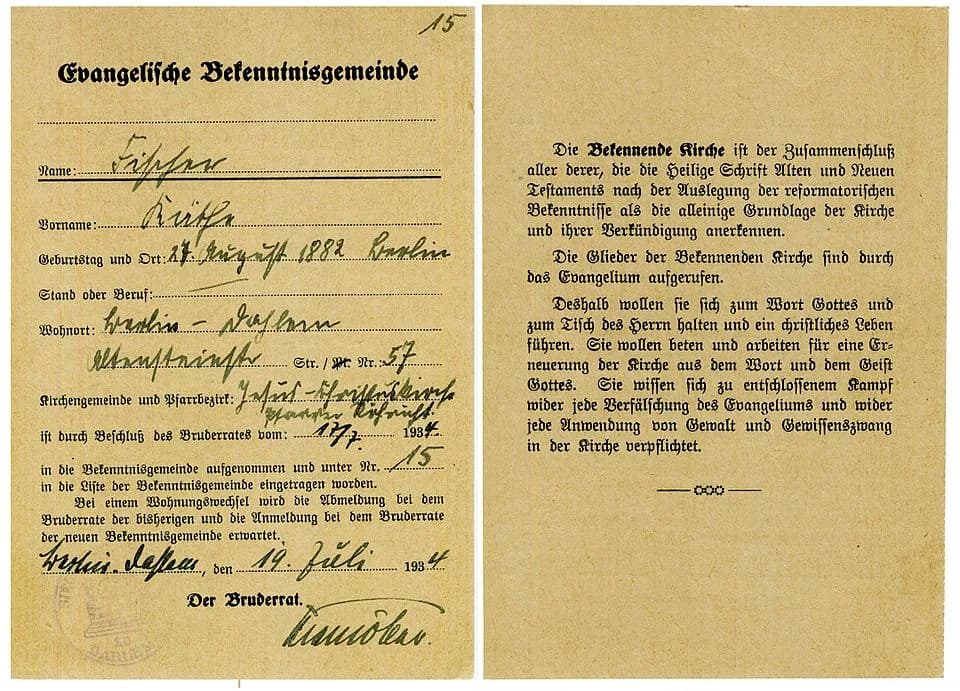 15
Evangelische Bekenntnisgemeinde
Name: Fischer
Vorname: Käthe
Geburtstag und Ort: 27. August 1882 Berlin
Stand oder Beruf:
Wohnort: Berlin - Dahlem
Altensteinstr Str. / Nr.: 57
Kirchengemeinde und Pfarrbezirk: Jesus-Christuskirche
Pfarrer Röhricht
ist durch Beschluß des Bruderrates vom: 17/7. 1934
in die Bekenntnisgemeinde aufgenommen und unter Nr. 15
in die Liste der Bekenntnisgemeinde eingetragen worden.
Bei einem Wohnungswechsel wird die Abmeldung bei dem
Bruderrate der bisherigen und die Anmeldung bei dem Bruderrate
der neuen Bekenntnisgemeinde erwartet.
Berlin-Dahlem, den 19. Juli 1934
Der Bruderrat.
Die Bekennende Kirche ist der Zusammenschluß
aller derer, die die Heilige Schrift Alten und Neuen
Testaments nach der Auslegung der reformatorischen
Bekenntnisse als die alleinige Grundlage der Kirche
und ihrer Verkündigung anerkennen.
Die Glieder der Bekennenden Kirche sind durch
das Evangelium aufgerufen.
Deshalb wollen sie sich zum Wort Gottes und
zum Tisch des Herrn halten und ein christliches Leben
führen. Sie wollen beten und arbeiten für eine Er-
neuerung der Kirche aus dem Wort und dem Geist
Gottes. Sie wissen sich zu entschlossenem Kampf
wider jede Verfälschung des Evangeliums und wider
jede Anwendung von Gewalt und Gewissenszwang
in der Kirche verpflichtet.